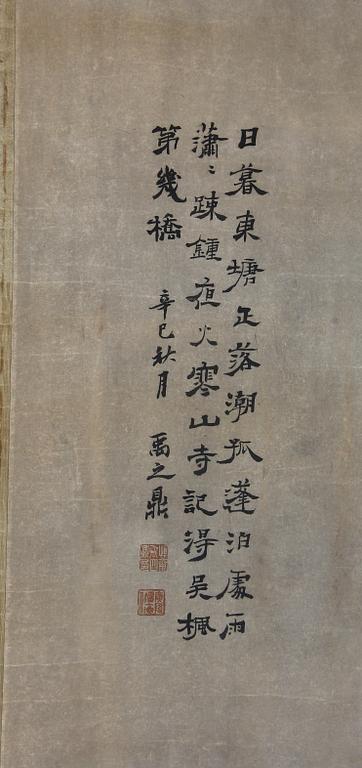 日暮東塘正落潮孤蓬泊處雨
瀟〻踈鍾夜火寒山寺記得吳楓
第幾橋
辛巳秋月
禹之鼎